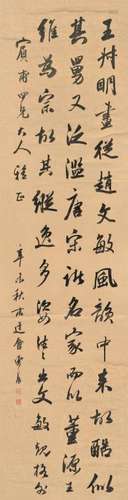 王叔明畫從趙文敏風韻中來故酷似
其舅又泛濫唐宋諸名家而以董源王
維為宗故其縱逸多姿往往出文敏規格外
賓甫四兄大人雅正
辛未秋